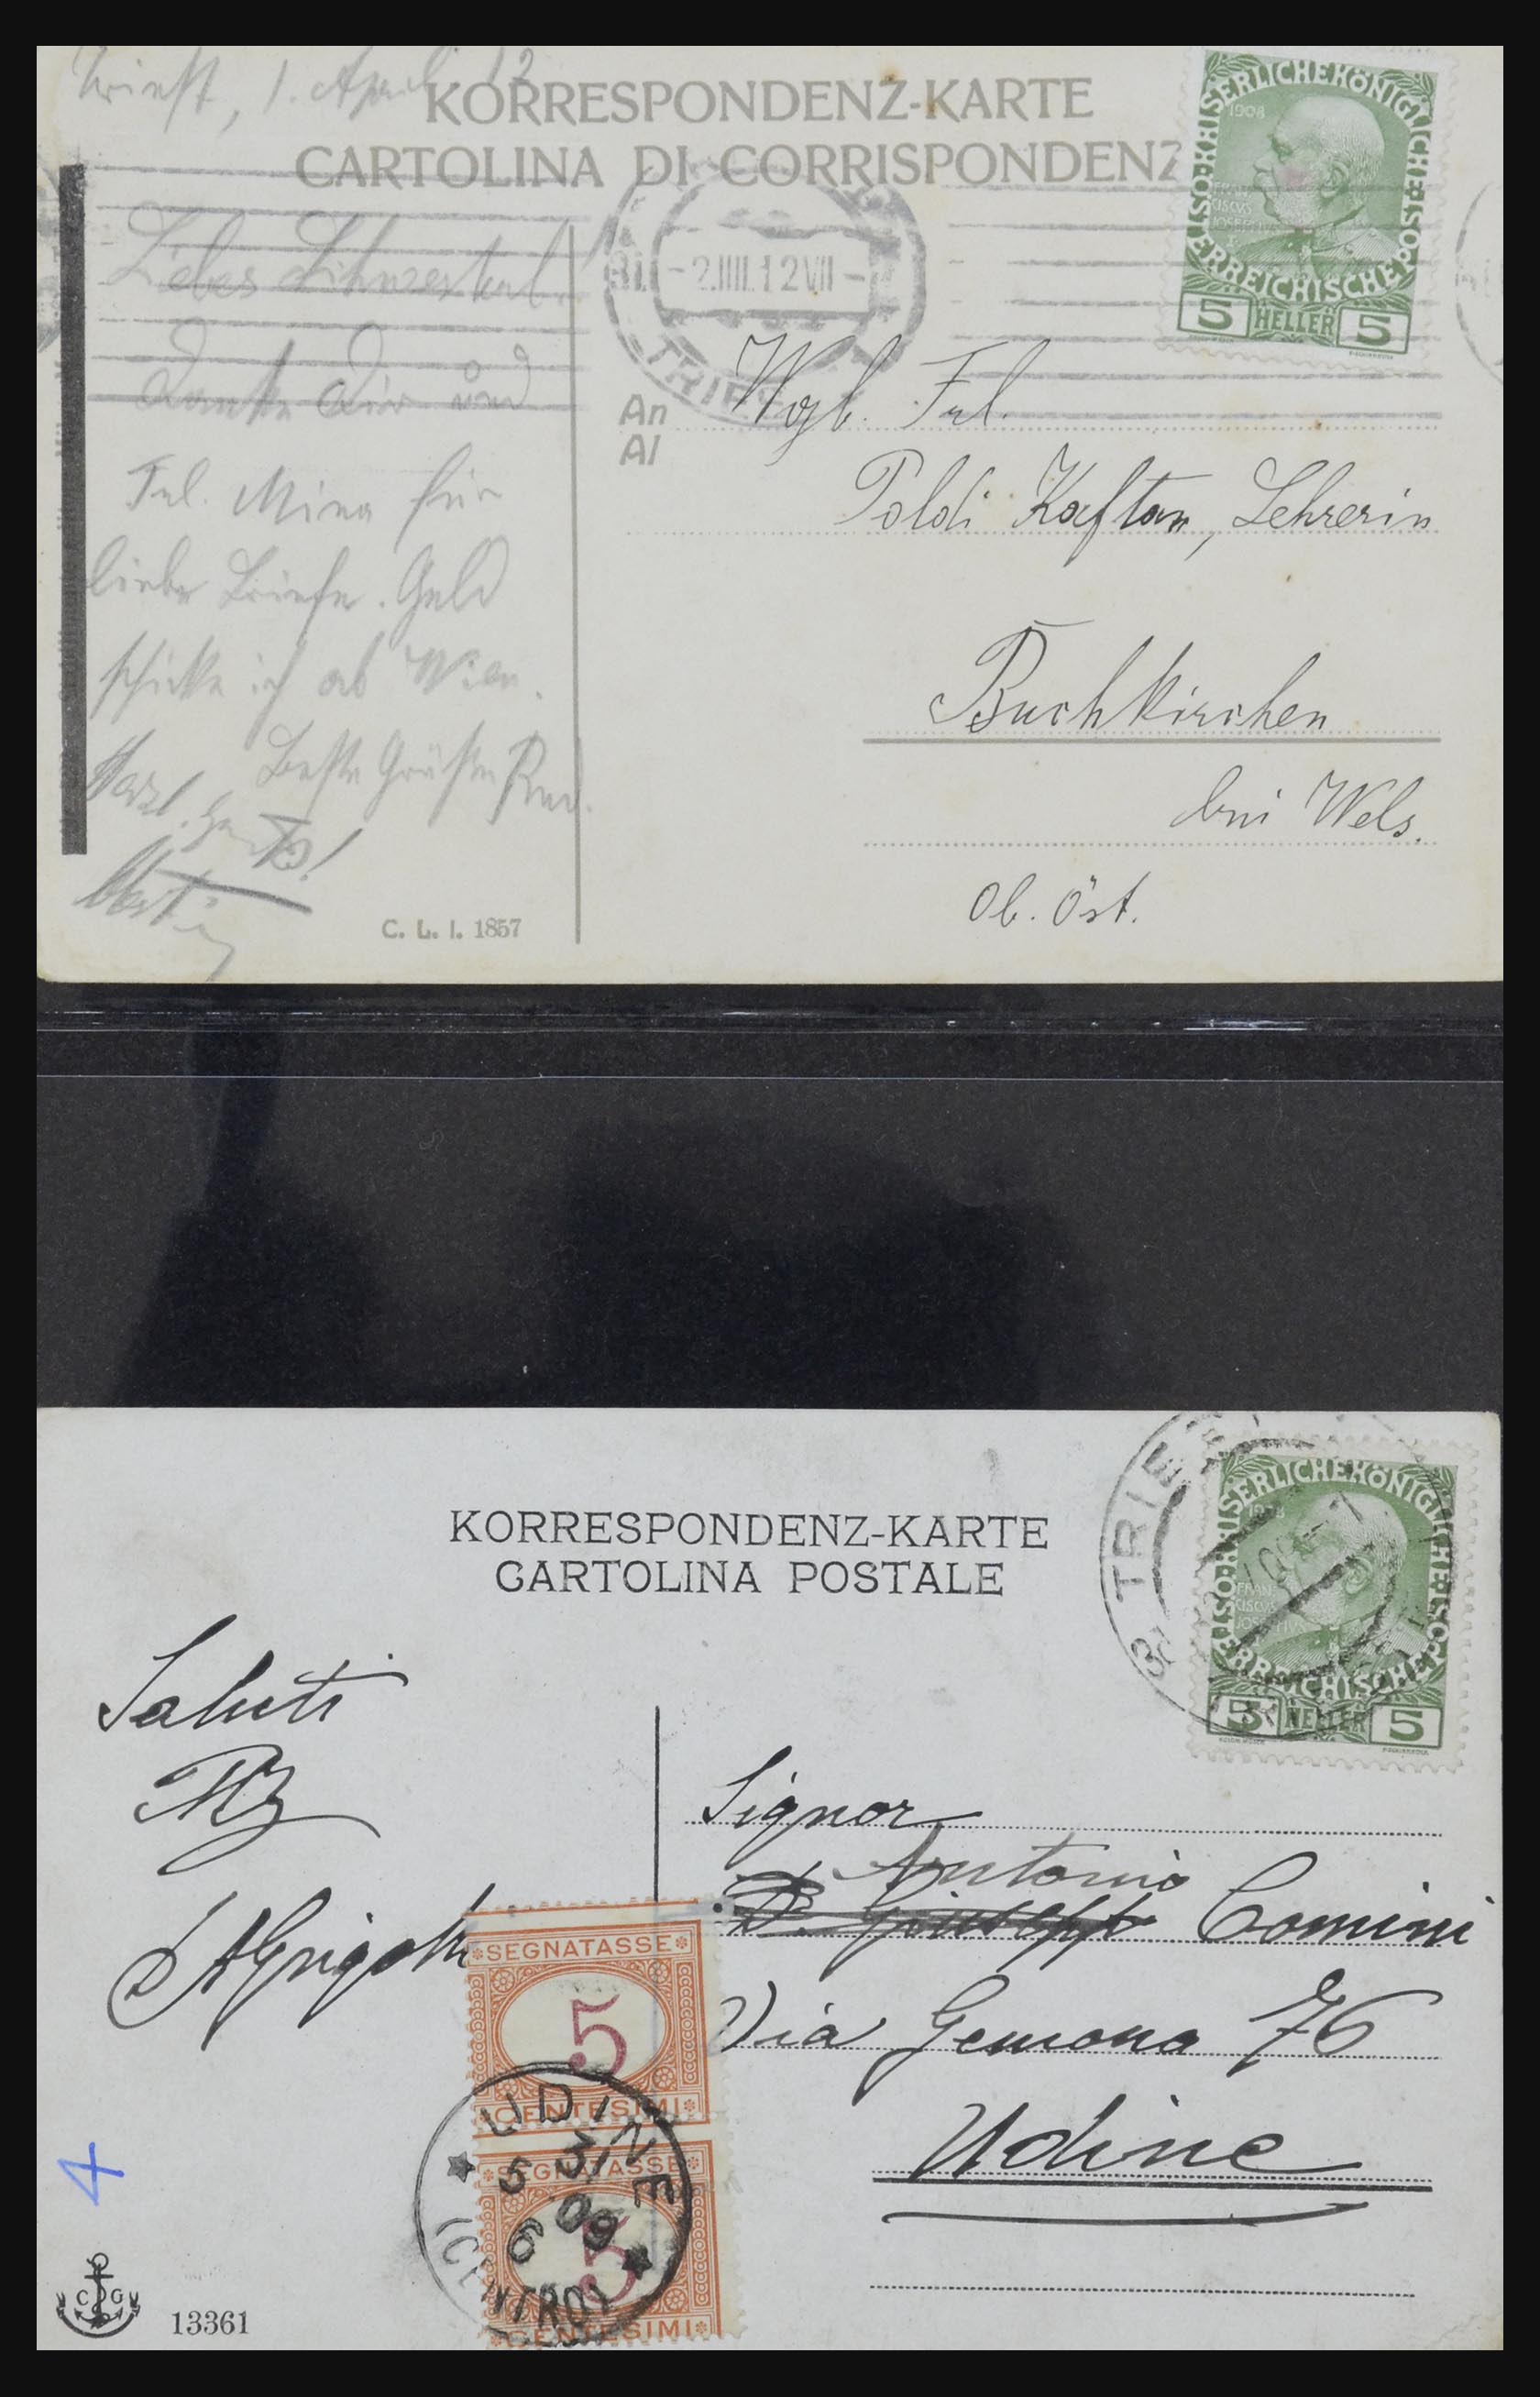 Triest, 1. April 12
KORRESPONDENZ-KARTE
CARTOLINA DI CORRISPONDENZ
KAISERLICHEKÖNIGLICHE ÖSTERREICHISCHE POST
1908
FRAN
CISCVS
IOSEPHVS
5 HELLER 5
-2.IIII.12 VII-
TRIES
Liebes Schwesterl.
Danke Dir und
Frl. Mina für
liebe Briefe. Geld
schicke ich ab Wien.
Beste Grüße
An
Al
Wgb. Frl.
Poldi Kaftan, Lehrerin
Buchkirchen
bei Wels.
Ob. Öst.
C. L. I. 1857
KORRESPONDENZ-KARTE
CARTOLINA POSTALE
3 TRIES
KAISERLICHEKÖNIGLICHE ÖSTERREICHISCHE POST
1908
FRAN
CISCVS
IOSEPHVS
5 HELLER 5
Saluti
Signor
Antonio
D. Giuseppe Comini
Via Gemona 76
Udine
SEGNATASSE
5
CENTESIMI
SEGNATASSE
5
CENTESIMI
UDINE
5 31
6 09
(CENTRO)
4
C G
13361